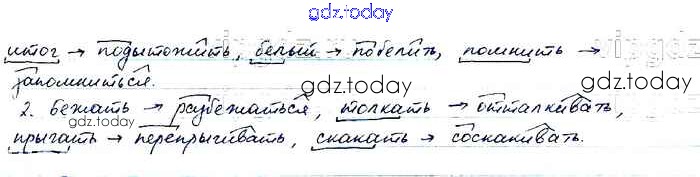 gdz.today
итог → подытожить, белый → побелить, помнить →
запомниться.
gdz.today
2. бежать → разбежаться, толкать → отталкивать,
gdz.today
прыгать → перепрыгивать, скакать → соскакивать.